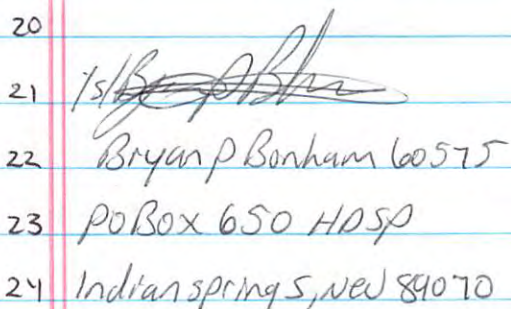 20
21 /s/
22 Bryan P Bonham 60575
23 PO Box 650 HDSP
24 Indian springs, Nev 89070